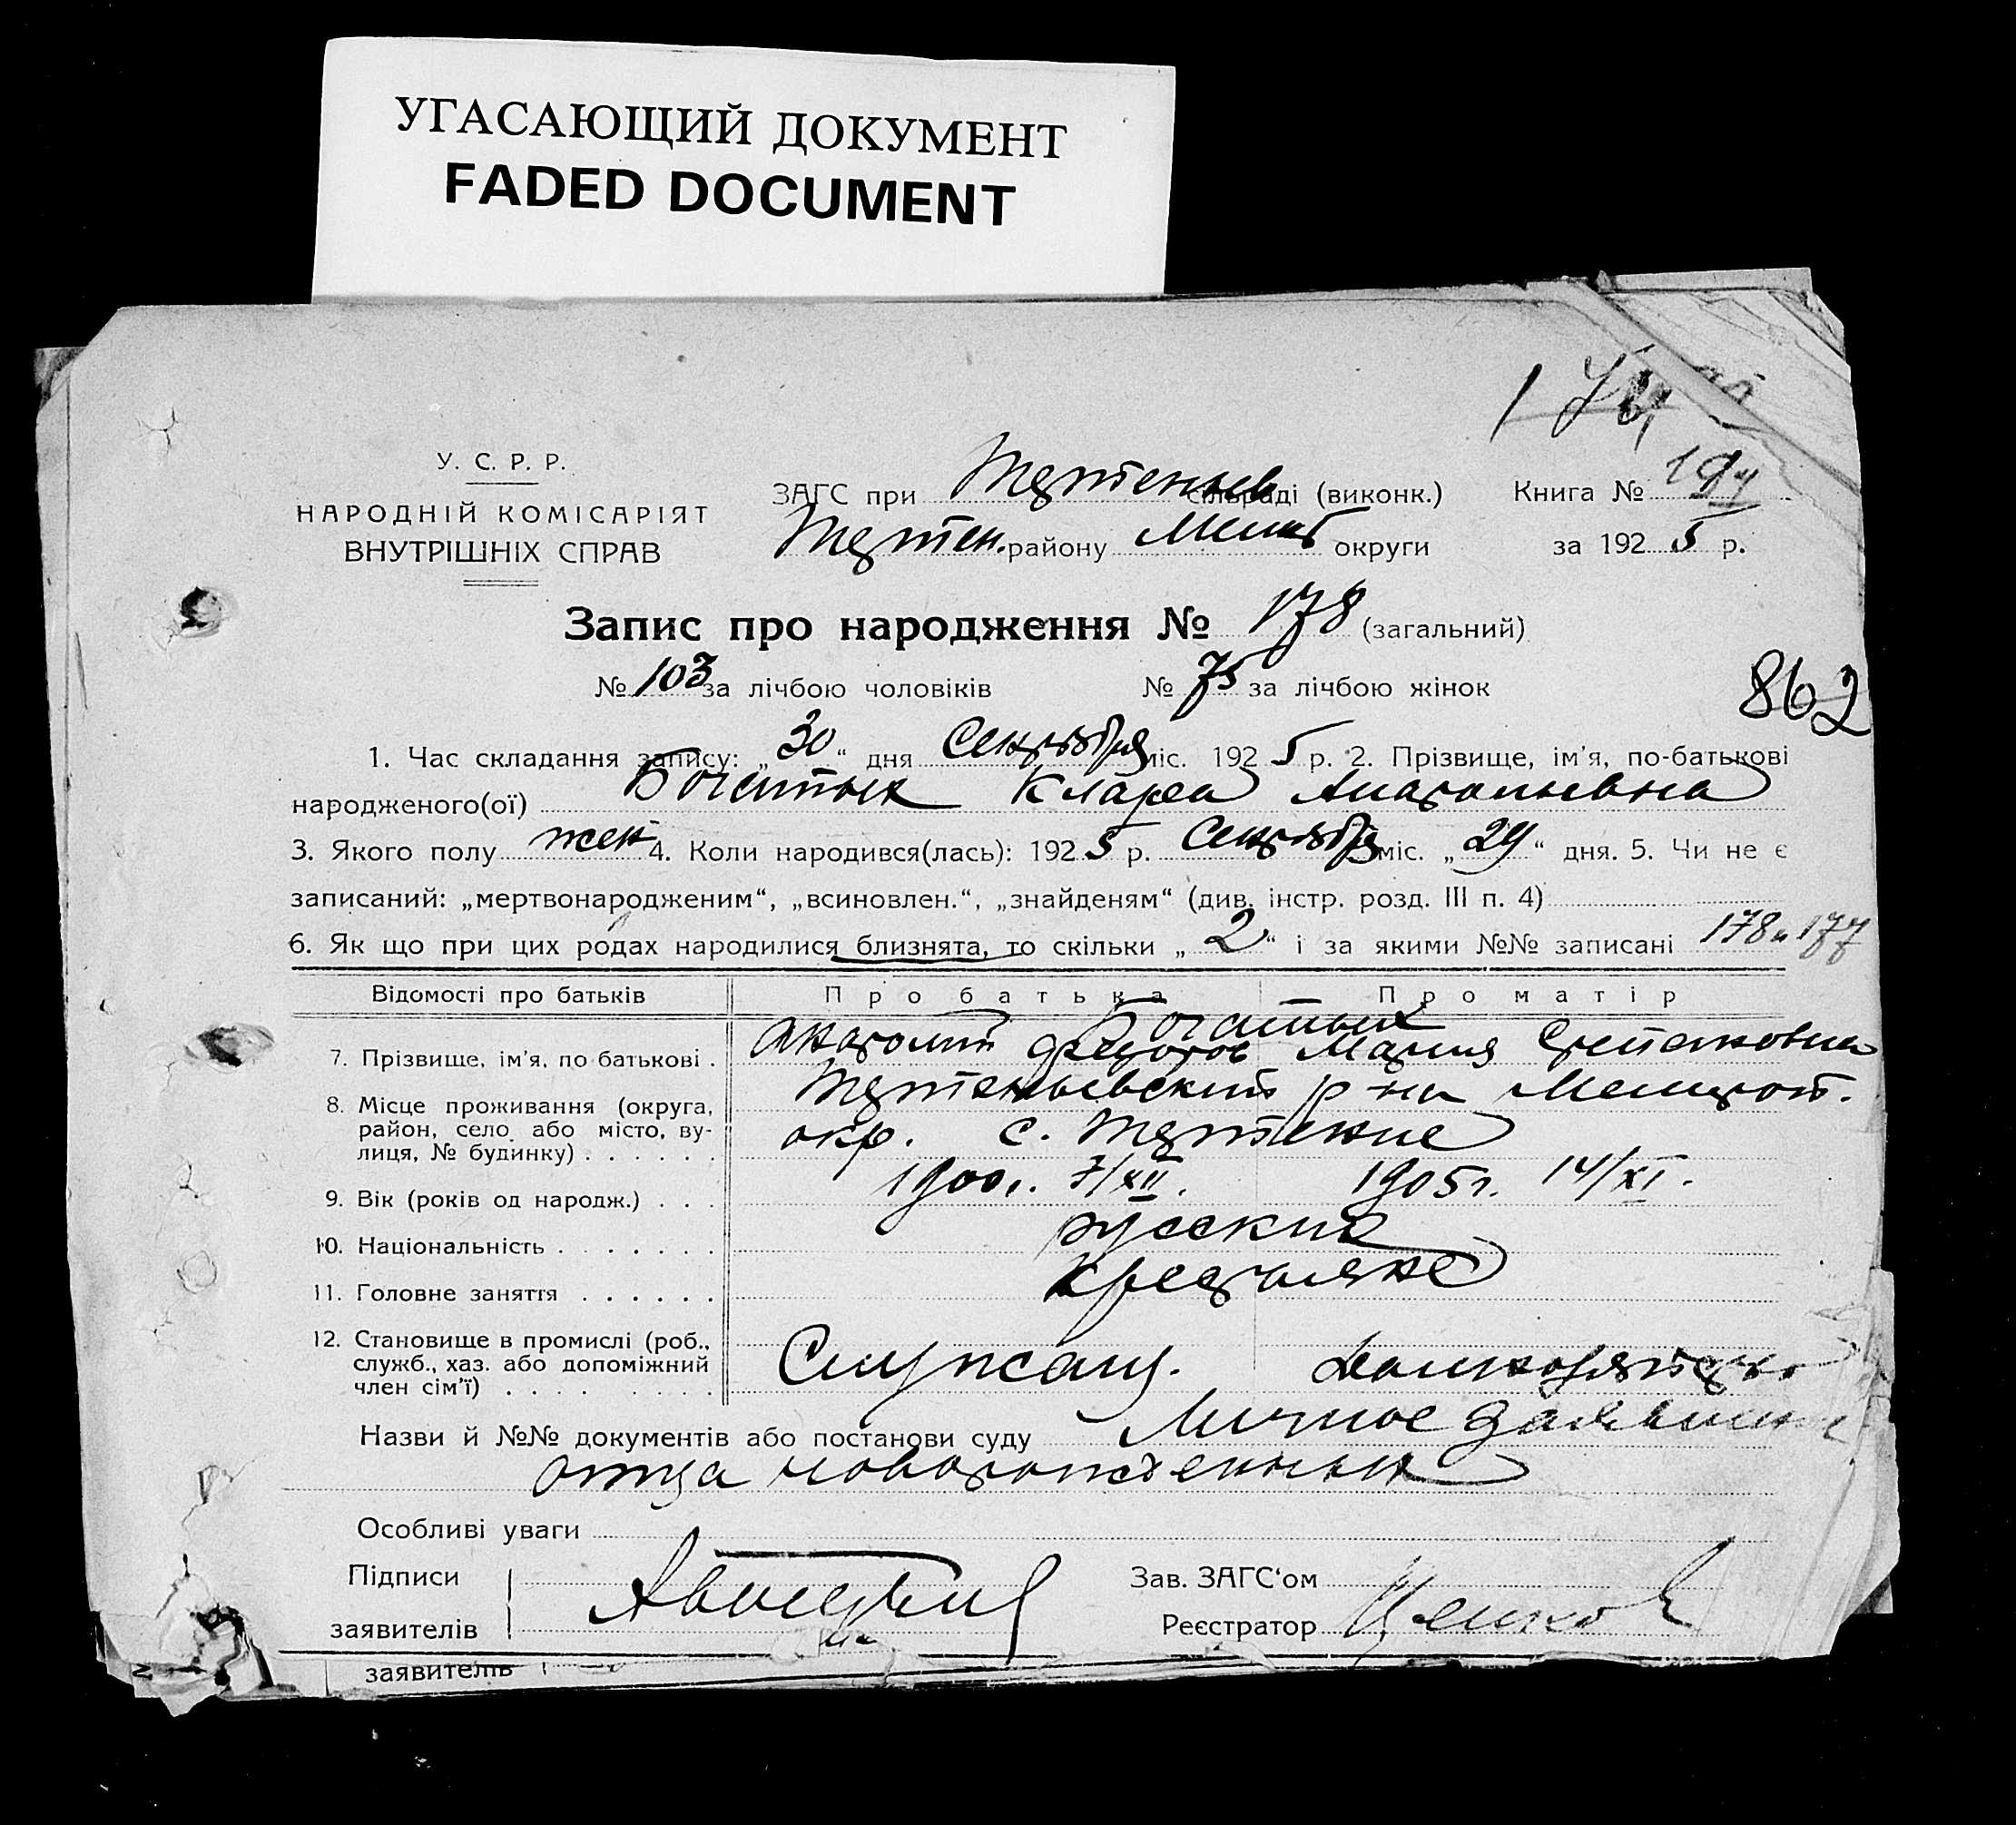 УГАСАЮЩИЙ ДОКУМЕНТ
FADED DOCUMENT
У. С. Р. Р.
НАРОДНІЙ КОМІСАРІЯТ
ВНУТРІШНІХ СПРАВ
ЗАГС при сільраді (виконк.)
району Мелит округи
Книга № 194
за 1925 р.
Запис про народження № 178 (загальний)
№ 103 за лічбою чоловіків № 75 за лічбою жінок
862
1. Час складання запису: „30“ дня Сентября міс. 1925 р. 2. Прізвище, ім'я, по-батькові
народженого(ої) Богатых Клара Анатольевна
3. Якого полу жен 4. Коли народився(лась): 1925 р. Сентября міс. „29“ дня. 5. Чи не є
записаний: „мертвонародженим“, „всиновлен.“, „знайденям“ (див. інстр. розд. III п. 4)
6. Як що при цих родах народилися близнята, то скільки „2“ і за якими №№ записані 178 и 177
Відомості про батьків Про батька Про матір
Богатых
7. Прізвище, ім'я, по батькові . Анатолий Федотов Мария Степановна
8. Місце проживання (округа, район, село або місто, вулиця, № будинку) . . . . . . р-на Мелитоп.
окр. с.
9. Вік (років од народж.) . . . 1900г. 7/XII. 1905г. 14/XI.
10. Національність . . . . . . . русские
11. Головне заняття . . . . . . Крестьяне
12. Становище в промислі (роб., служб., хаз. або допоміжний член сім'ї) . . . . . . . . . Служащ. домохозяйство
Назви й №№ документів або постанови суду Личное заявление
отца новорожденных
Особливі уваги
Підписи
заявителів
Зав. ЗАГС'ом
Реєстратор
заявителів